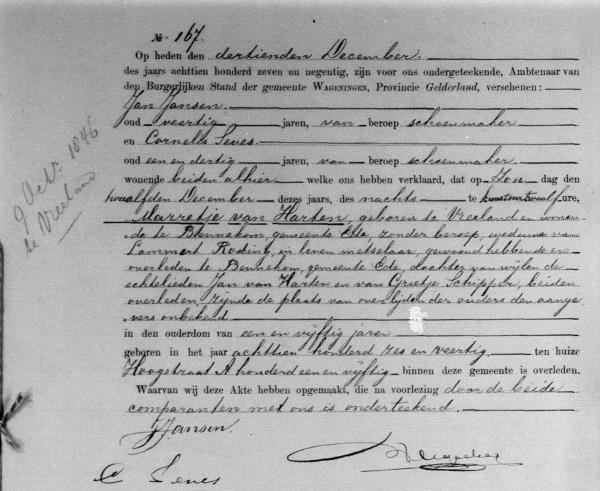 № 167.
Op heden den dertienden December.
des jaars achttien honderd zeven en negentig, zijn voor ons ondergeteekende, Ambtenaar van
den Burgerlijken Stand der gemeente WAGENINGEN, Provincie Gelderland, verschenen:
Jan Jansen.
oud veertig jaren, van beroep schoenmaker
en Cornelis Seves.
oud een en dertig jaren, van beroep schoenmaker.
wonende beiden alhier welke ons hebben verklaard, dat op Zon dag den
twaalfden December dezes jaars, des nachts te kwart over twaalf ure,
Marretje van Harten, geboren te Vreeland en wonen
de te Bennekom, gemeente Ede, zonder beroep, weduwe van
Lammert Roding, in leven metselaar, gewoond hebbende en
overleden te Bennekom, gemeente Ede, dochter van wijlen de
echtelieden Jan van Harten en van Grietje Schipper, beiden
overleden, zijnde de plaats van overlijden der ouders den aange
vers onbekend
in den ouderdom van een en vijftig jaren
geboren in het jaar achttien honderd zes en veertig. ten huize
Hoogstraat A honderd een en vijftig binnen deze gemeente is overleden.
Waarvan wij deze Akte hebben opgemaakt, die na voorlezing door de beide
comparanten met ons is onderteekend.
J Jansen.
C Seves
9 Octr 1846
te Vreeland